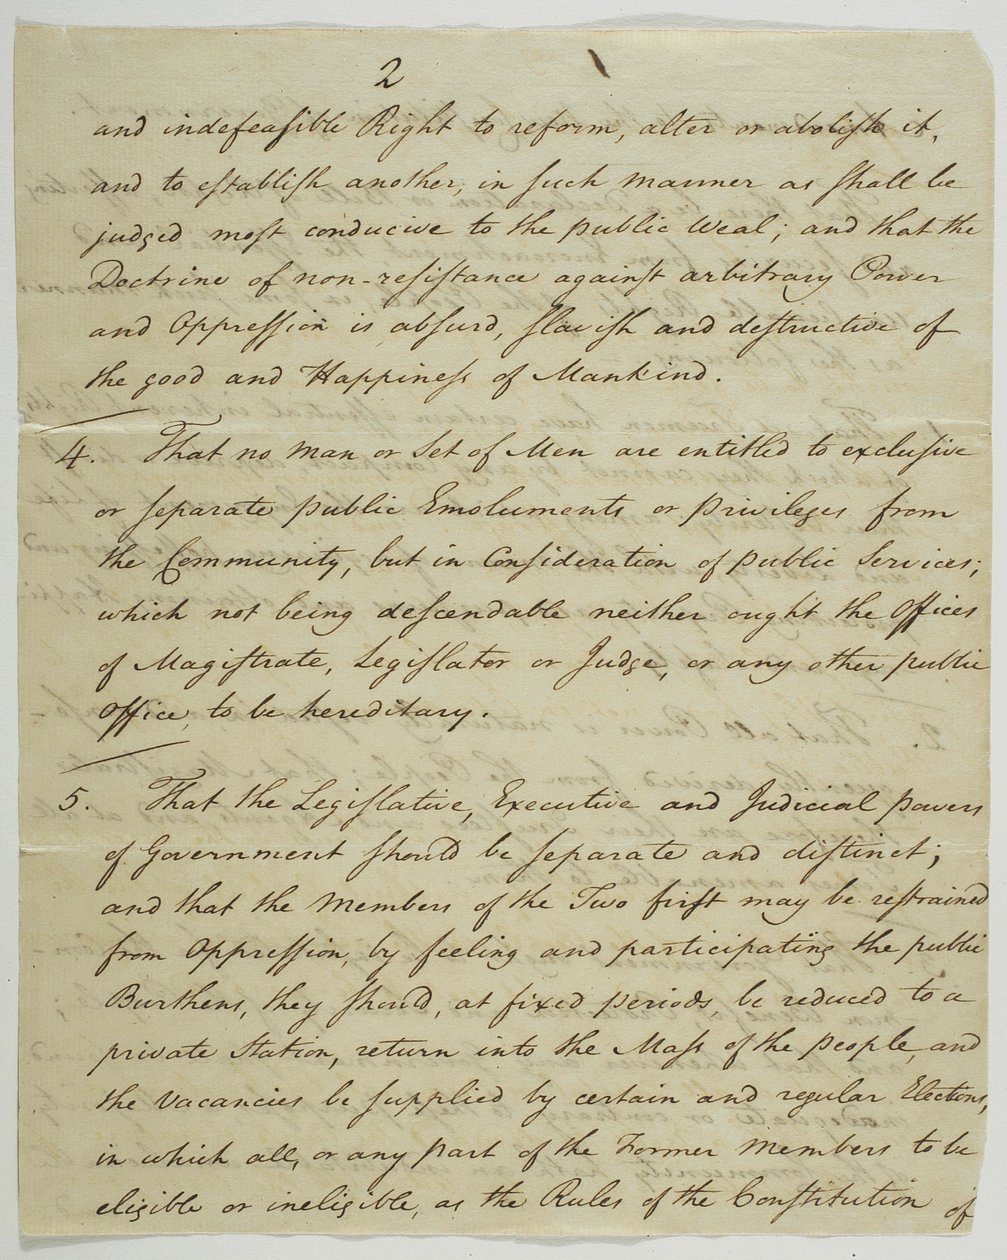 2
and indefeasible Right to reform, alter or abolish it,
and to establish another, in such manner as shall be
judged most conducive to the public Weal; and that the
Doctrine of non-resistance against arbitrary Power
and Oppression is absurd, slavish and destructive of
the good and Happiness of Mankind.
4. That no man or Set of Men are entitled to exclusive
or separate public Emoluments or privileges from
the Community, but in Consideration of public Services;
which not being descendable neither ought the Offices
of Magistrate, Legislator or Judge, or any other public
Office, to be hereditary.
5. That the Legislative, Executive and Judicial powers
of Government should be separate and distinct;
and that the Members of the Two first may be restrained
from Oppression, by feeling and participating the public
Burthens, they should, at fixed periods, be reduced to a
private Station, return into the Mass of the people, and
the vacancies be supplied by certain and regular Elections,
in which all, or any part of the Former Members to be
eligible or ineligible, as the Rules of the Constitution of